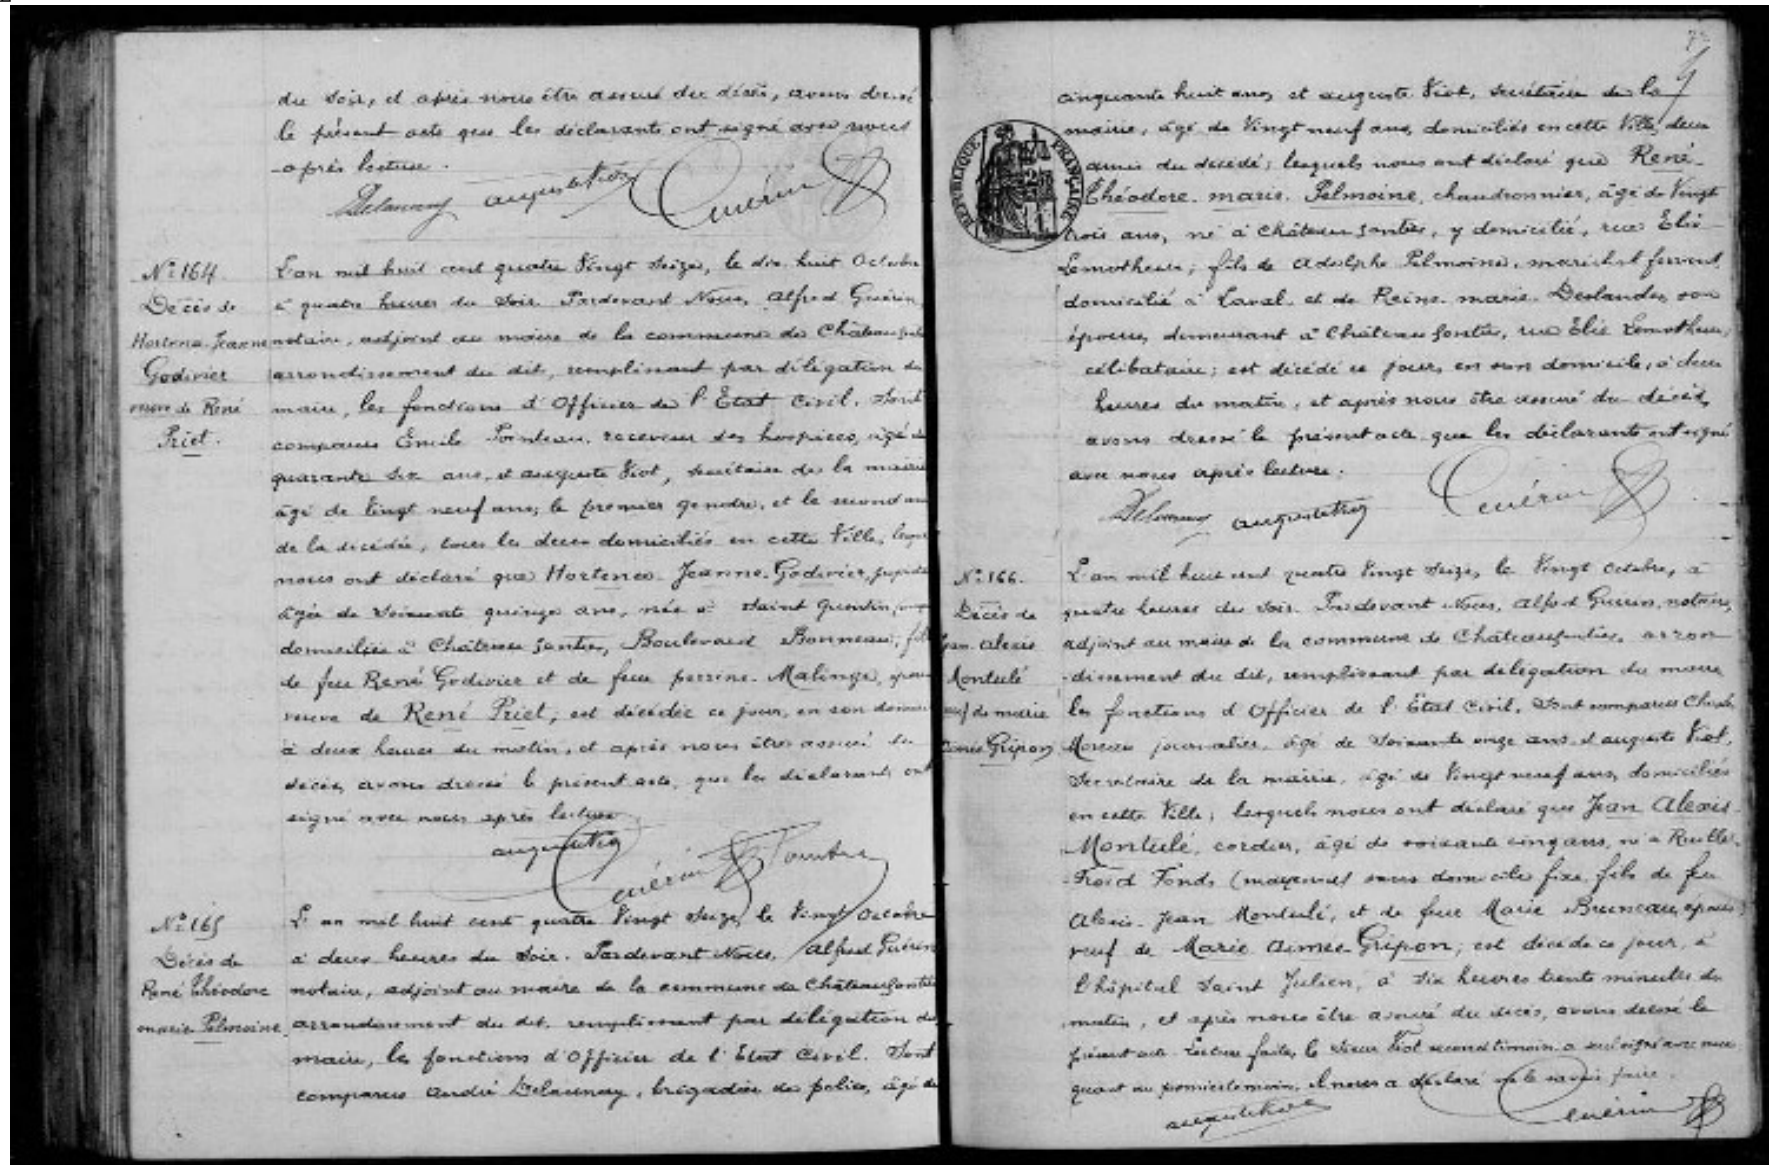 du soir, et après nous être assuré du décès, avons dressé
le présent acte que les déclarants ont signé avec nous
après lecture.
Delaunay auguste Viot Guérin
N° 164
Décès de
Hortense Jeanne
Godivier
veuve de René
Priet.
L'an mil huit cent quatre Vingt Seize, le dix huit Octobre
à quatre heures du Soir. Pardevant Nous, Alfred Guérin
notaire, adjoint au maire de la commune de Château
arrondissement du dit, remplissant par délégation du
maire, les fonctions d'Officier de l'Etat Civil. Sont
comparus Emile Pointeau, receveur des hospices, âgé de
quarante six ans, et auguste Viot, secrétaire de la mairie
âgé de Vingt neuf ans, le premier gendre, et le second ami
de la décédée, tous les deux domiciliés en cette Ville,
nous ont déclaré que Hortence Jeanne Godivier,
âgée de Soixante quinze ans, née à Saint Quentin,
domiciliée à Château Gontier, Boulevard Bonneau,
de feu René Godivier et de feue perrine Malinge,
veuve de René Priet, est décédée ce jour, en son
à deux heures du matin, et après nous être assuré du
décès, avons dressé le présent acte, que les déclarants ont
signé avec nous après lecture
auguste Viot
Guérin Pointeau
N° 165
Décès de
René Théodore
marie Pelmoine
L'an mil huit cent quatre Vingt Seize, le Vingt Octobre
à deux heures du Soir. Pardevant Nous, Alfred Guérin
notaire, adjoint au maire de la commune de Châteaugontier
arrondissement du dit, remplissant par délégation du
maire, les fonctions d'Officier de l'Etat Civil. Sont
comparus André Delaunay, brigadier de police, âgé de
cinquante huit ans, et auguste Viot, secrétaire de la
mairie, âgé de Vingt neuf ans, domiciliés en cette Ville, deux
amis du décédé; lesquels nous ont déclaré que René
Théodore marie Pelmoine, chaudronnier, âgé de Vingt
trois ans, né à Château Gontier, y domicilié, rue Elie
Lemotheux; fils de Adolphe Pelmoine, maréchal ferrant,
domicilié à Laval et de Reine marie Deslandes, son
épouse, demeurant à Château Gontier, rue Elie Lemotheux,
célibataire; est décédé ce jour, en son domicile, à deux
heures du matin, et après nous être assuré du décès,
avons dressé le présent acte que les déclarants ont signé
avec nous après lecture.
Delaunay auguste Viot Guérin
REPUBLIQUE FRANÇAISE
N° 166.
Décès de
Jean Alexis
Montulé
veuf de marie
aimée Gripon
L'an mil huit cent quatre Vingt Seize, le Vingt Octobre, à
quatre heures du Soir. Pardevant Nous, Alfred Guérin, notaire,
adjoint au maire de la commune de Châteaugontier, arron
-dissement du dit, remplissant par délégation du maire
les fonctions d'Officier de l'Etat Civil. Sont comparus
Moreau journalier, âgé de Soixante onze ans, et auguste Viot,
Secrétaire de la mairie, âgé de Vingt neuf ans, domiciliés
en cette Ville; lesquels nous ont déclaré que Jean Alexis
Montulé, cordier, âgé de soixante cinq ans, né à Ruillé
Froid Fonds (mayenne) sans domicile fixe, fils de feu
Alexis Jean Montulé, et de feue Marie Bruneau, époux
veuf de Marie aimée Gripon; est décédé ce jour, à
l'hôpital Saint Julien, à Six heures trente minutes du
matin, et après nous être assuré du décès, avons dressé le
présent acte. Lecture faite, le Sieur Viot second témoin a seul signé avec nous
quant au premier témoin, il nous a déclaré ne le savoir faire.
auguste Viot Guérin